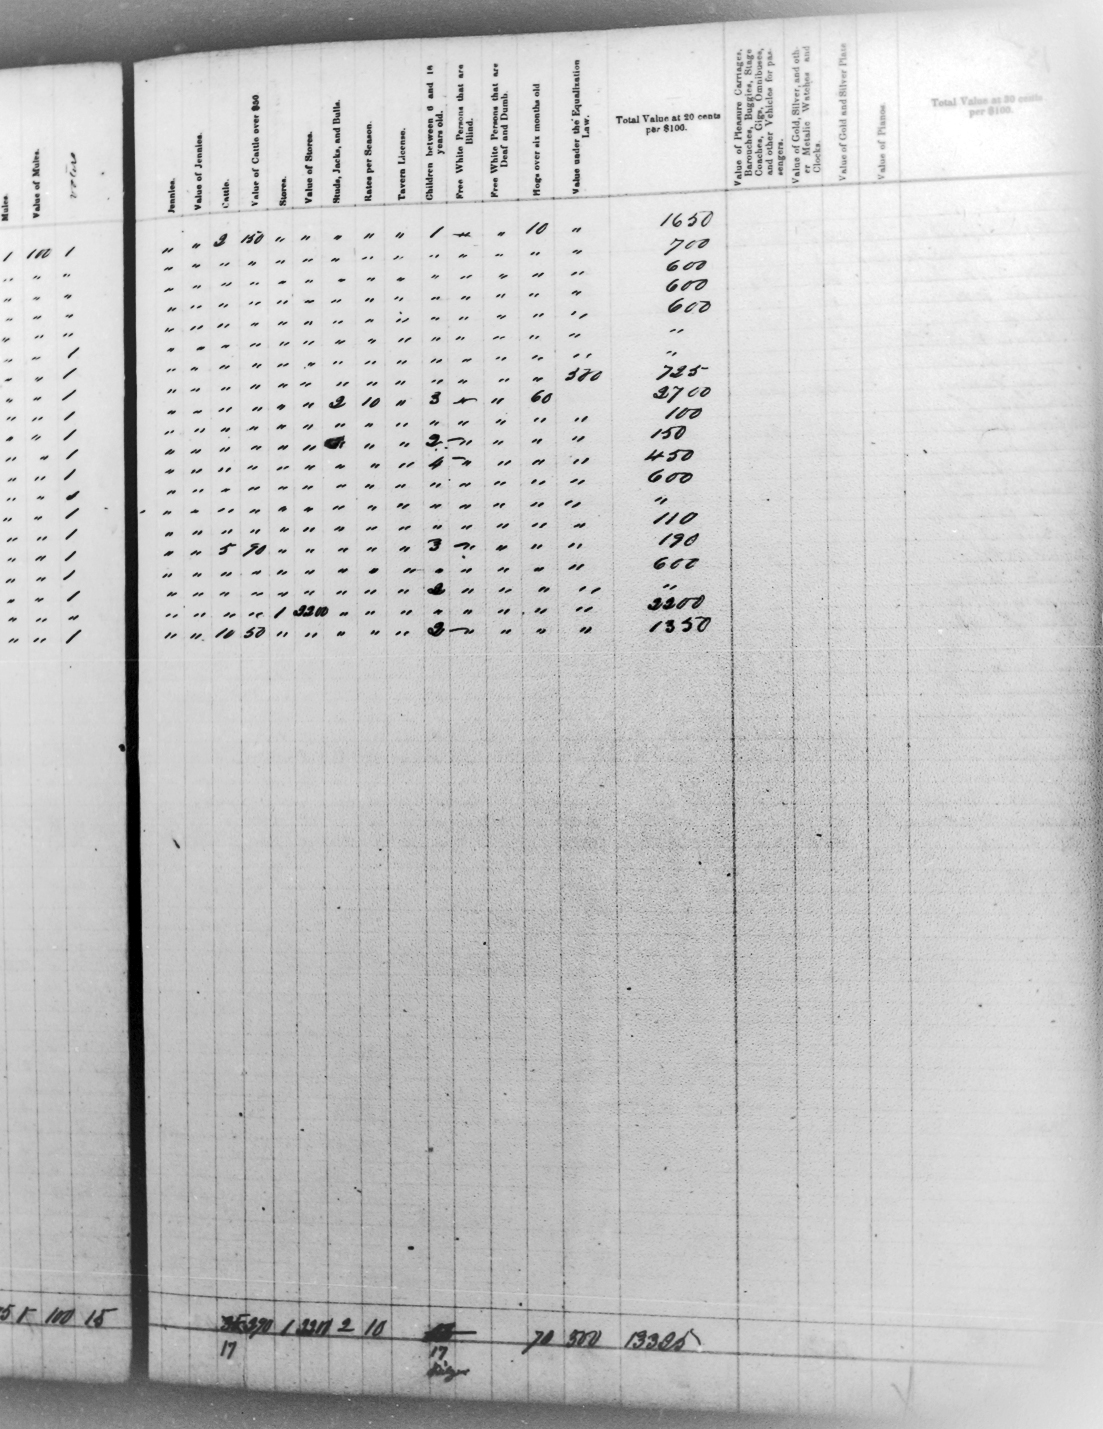 Mules. Value of Mules. voters Jennies. Value of Jennies. Cattle. Value of Cattle over $50 Stores. Value of Stores. Studs, Jacks, and Bulls. Rates per Season. Tavern License. Children between 6 and 18 years old. Free White Persons that are Blind. Free White Persons that are Deaf and Dumb. Hogs over six months old Value under the Equalization Law. Total Value at 20 cents per $100. Value of Pleasure Carriages, Barouches, Buggies, Stage Coaches, Gigs, Omnibuses, and other Vehicles for passengers. Value of Gold, Silver, and other Metalic Watches and Clocks. Value of Gold and Silver Plate Value of Pianos. Total Value at 30 cents per $100.
1 100 1 " " 2 150 " " " " " 1 " " 10 " 1650
" " " " " " " " " " " " " " " " " 700
" " " " " " " " " " " " " " " " " 600
" " " " " " " " " " " " " " " " " 600
" " " " " " " " " " " " " " " " " 600
" " 1 " " " " " " " " " " " " " " "
" " 1 " " " " " " " " " " " " " " "
" " 1 " " " " " " " " " " " " " 500 725
" " 1 " " " " " " 2 10 " 3 " " 60 2700
" " 1 " " " " " " " " " " " " " " 100
" " 1 " " " " " " " " 2 " " " " 150
" " 1 " " " " " " " " " 4 " " " " 450
" " " " " " " " " " " " " " " " 600
" " 1 " " " " " " " " " " " " " " "
" " 1 " " " " " " " " " " " " " " 110
" " 1 " " 5 90 " " " " " 3 " " " " 190
" " 1 " " " " " " " " " " " " " " 600
" " 1 " " " " " " " " " 2 " " " " "
" " " " " " " 1 2200 " " " " " " " " 2200
" " 1 " " 10 50 " " " " " 2 " " " " 1350
100 15 290 1 2200 2 10 70 500 13325
17 17